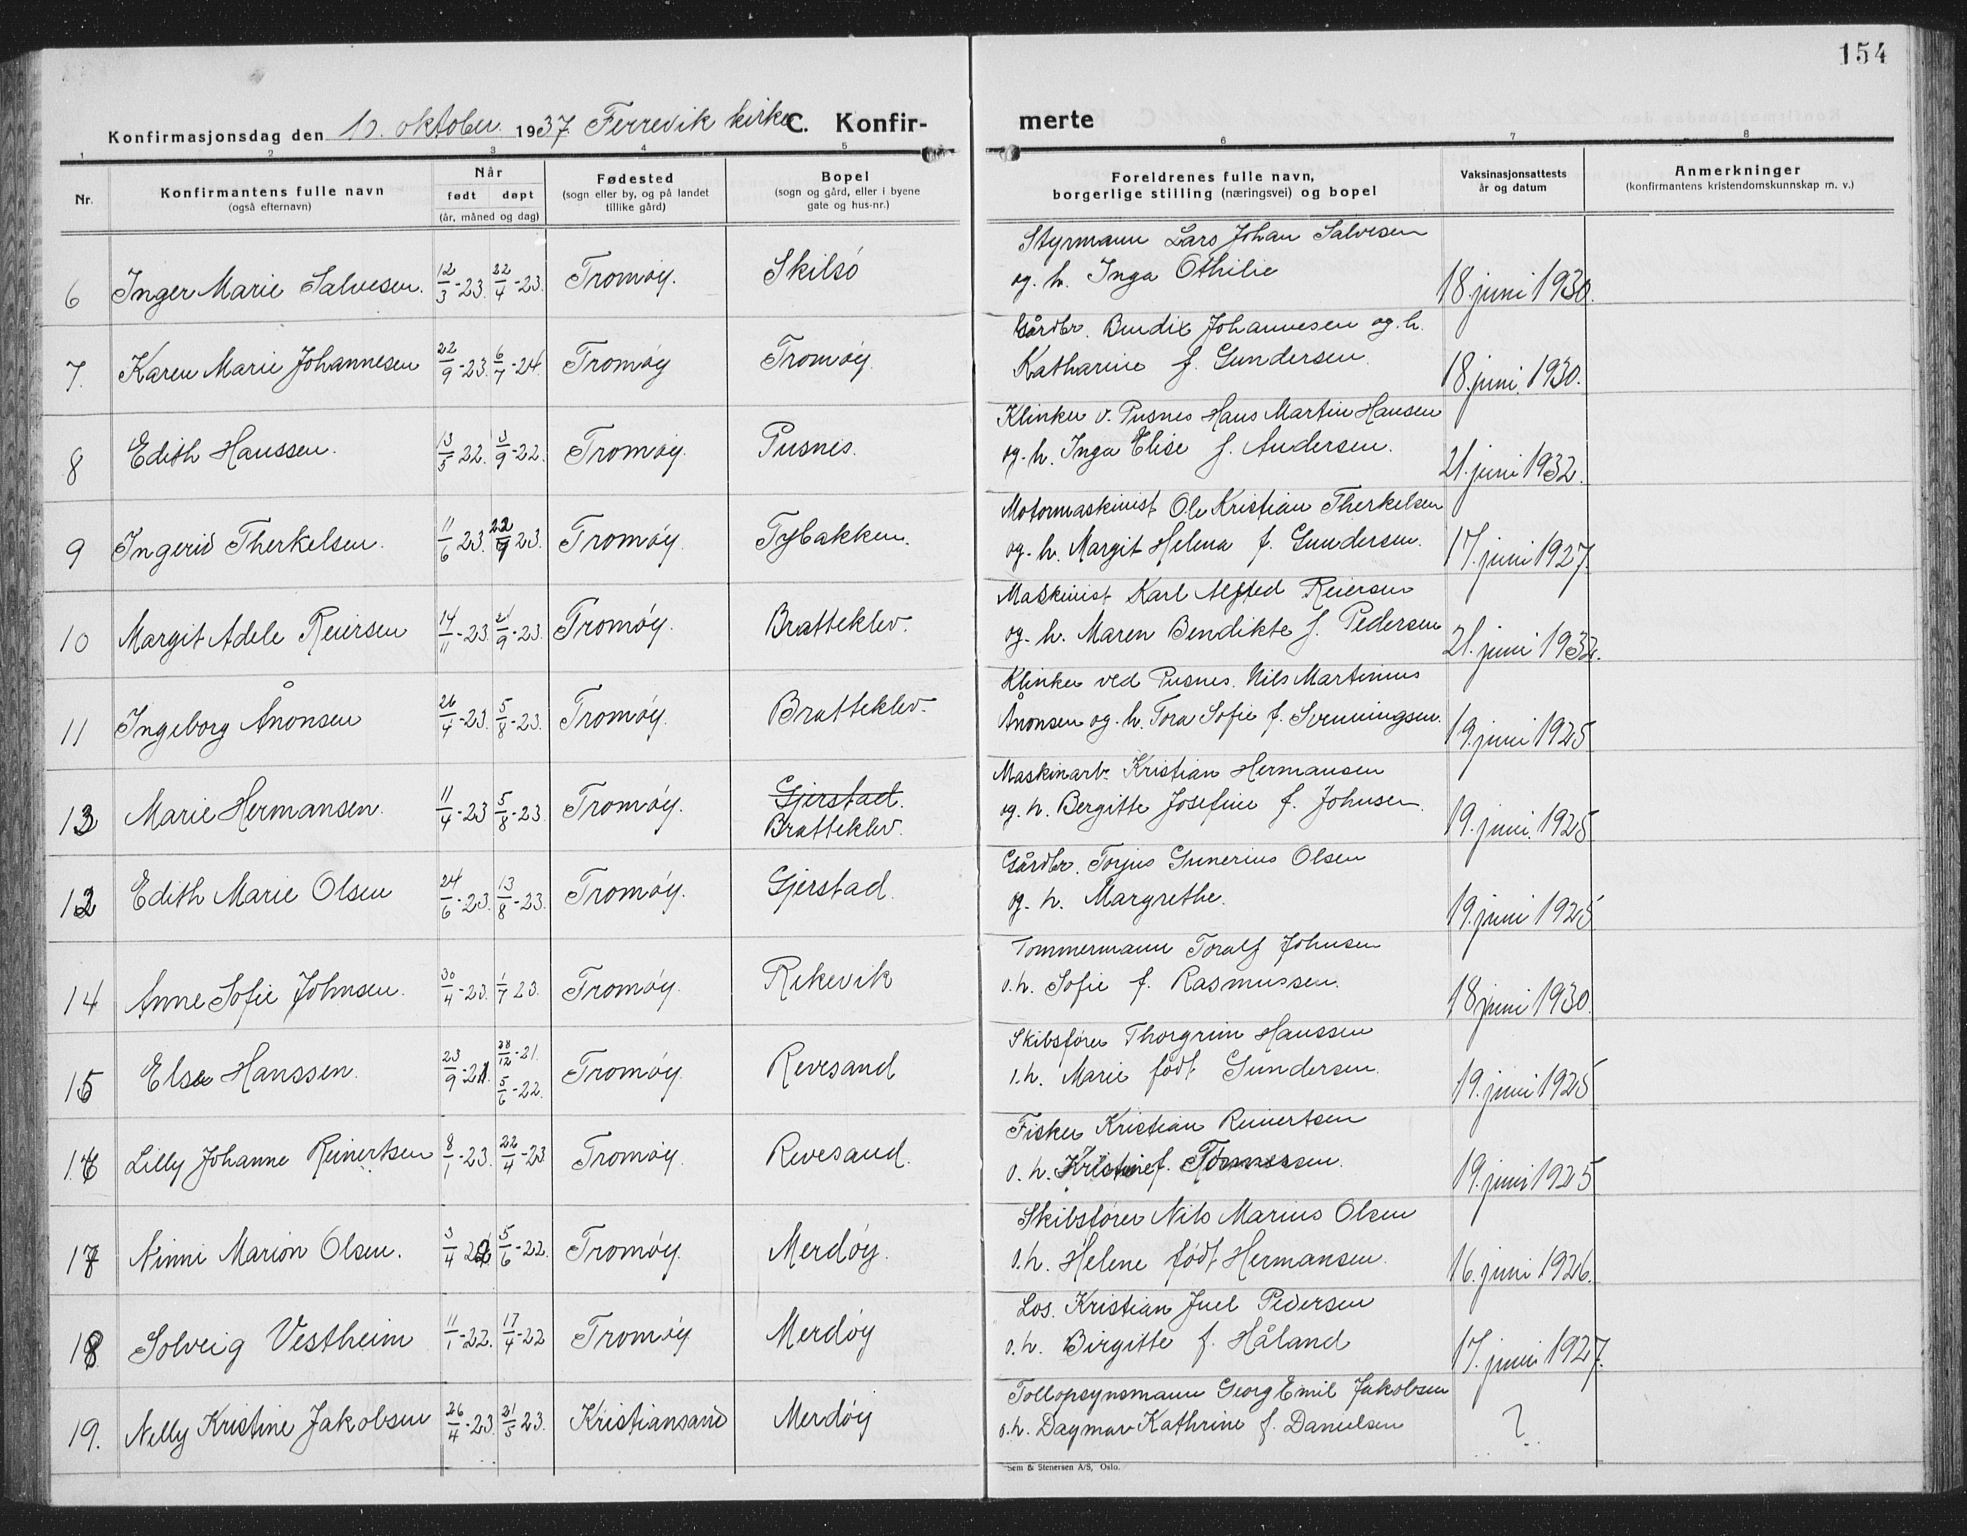 154
Konfirmasjonsdag den 10. oktober 1937 Færevik kirke C. Konfir- merte
1 2 3 4 5 6 7 8
Nr.
Konfirmantens fulle navn
(også efternavn)
Når
født døpt
(år, måned og dag)
Fødested
(sogn eller by, og på landet
tillike gård)
Bopel
(sogn og gård, eller i byene
gate og hus-nr.)
Foreldrenes fulle navn,
borgerlige stilling (næringsvei) og bopel
Vaksinasjonsattests
år og datum
Anmerkninger
(konfirmantens kristendomskunnskap m. v.)
6 Inger Marie Salvesen. 12/3-23. 22/4-23. Tromøy. Skilsö
Styrmann Lars Johan Salvesen
og. h. Inga Othilie 18. juni 1930.
7. Karen Marie Johannesen 22/9-23. 6/7-24. Tromøy Tromøy.
Gårdbr. Bendix Johannesen og. h.
Katharine f. Gundersen. 18. juni. 1930.
8 Edith Hanssen. 13/5 22. 3/9-22. Tromøy. Pusnes.
Klinker v. Pusnes Hans Martin Hansen
og. h. Inga Elise f. Andersen. 21. juni 1932.
9 Ingerid Therkelsen. 11/6 23. 22/9 23. Tromøy. Tybakken.
Motormaskinist Ole Kristian Therkelsen
og. h. Margit Helena f. Gundersen. 17. juni 1927.
10 Margit Adele Reiersen 14/11-23. 21/9-23. Tromøy. Bratteklev.
Maskinist Karl Alfred Reiersen
og. h. Maren Bendikte f. Pedersen 21. juni 1932.
11 Ingeborg Ånonsen 26/4-23. 5/8-23. Tromøy. Bratteklev.
Klinker ved Pusnes. Nils Martinius
Ånonsen og. h. Tora Sofie f. Svenningsen. 19. juni 1925.
13 Marie Hermansen. 11/4-23 5/8-23. Tromøy. Gjerstad.
Bratteklev.
Maskinarb. Kristian Hermansen
og. h. Bergitte Josefine f. Johnsen. 19. juni. 1925.
12 Edith Marie Olsen 24/6-23. 13/8-23. Tromøy. Gjerstad.
Gårdbr. Torjus Gunerius Olsen
og. h. Margrethe. 19. juni 1925
14 Anne Sofie Johnsen. 30/4-23. 1/7 23. Tromøy. Rekevik
Tommermann Toralf Johnsen
o. h. Sofie f. Rasmussen. 18 juni 1930.
15 Else Hanssen. 23/9-21. 28/12-21. 5/6-22. Tromøy. Revesand
Skibsfører Thorgrim Hanssen
o. h. Marie født Gundersen. 19. juni 1925
16 Lilly Johanne Reinertsen 8/1-23. 22/4-23 Tromøy. Revesand.
Fisker Kristian Reinertsen
o. h. Kristine f. Tønnessen. 19. juni 1925
17 Ninni Marion Olsen. 3/4-22 5/6-22. Tromøy. Merdøy.
Skibsfører Nils Marius Olsen
o. h. Helene født Hermansen. 16. juni 1926.
18 Solveig Vestheim 11/1-22. 17/4-22 Tromøy Merdøy
Los. Kristian Juel Pedersen
o. h. Birgitte f. Håland 17. juni 1927.
19. Nelly Kristine Jakobsen 26/4-23. 21/5 23. Kristiansand Merdøy
Tollopsynsmann Georg Emil Jakobsen
o. h. Dagmar Kathrine f. Danielsen ?
Sem & Stenersen A/S, Oslo.